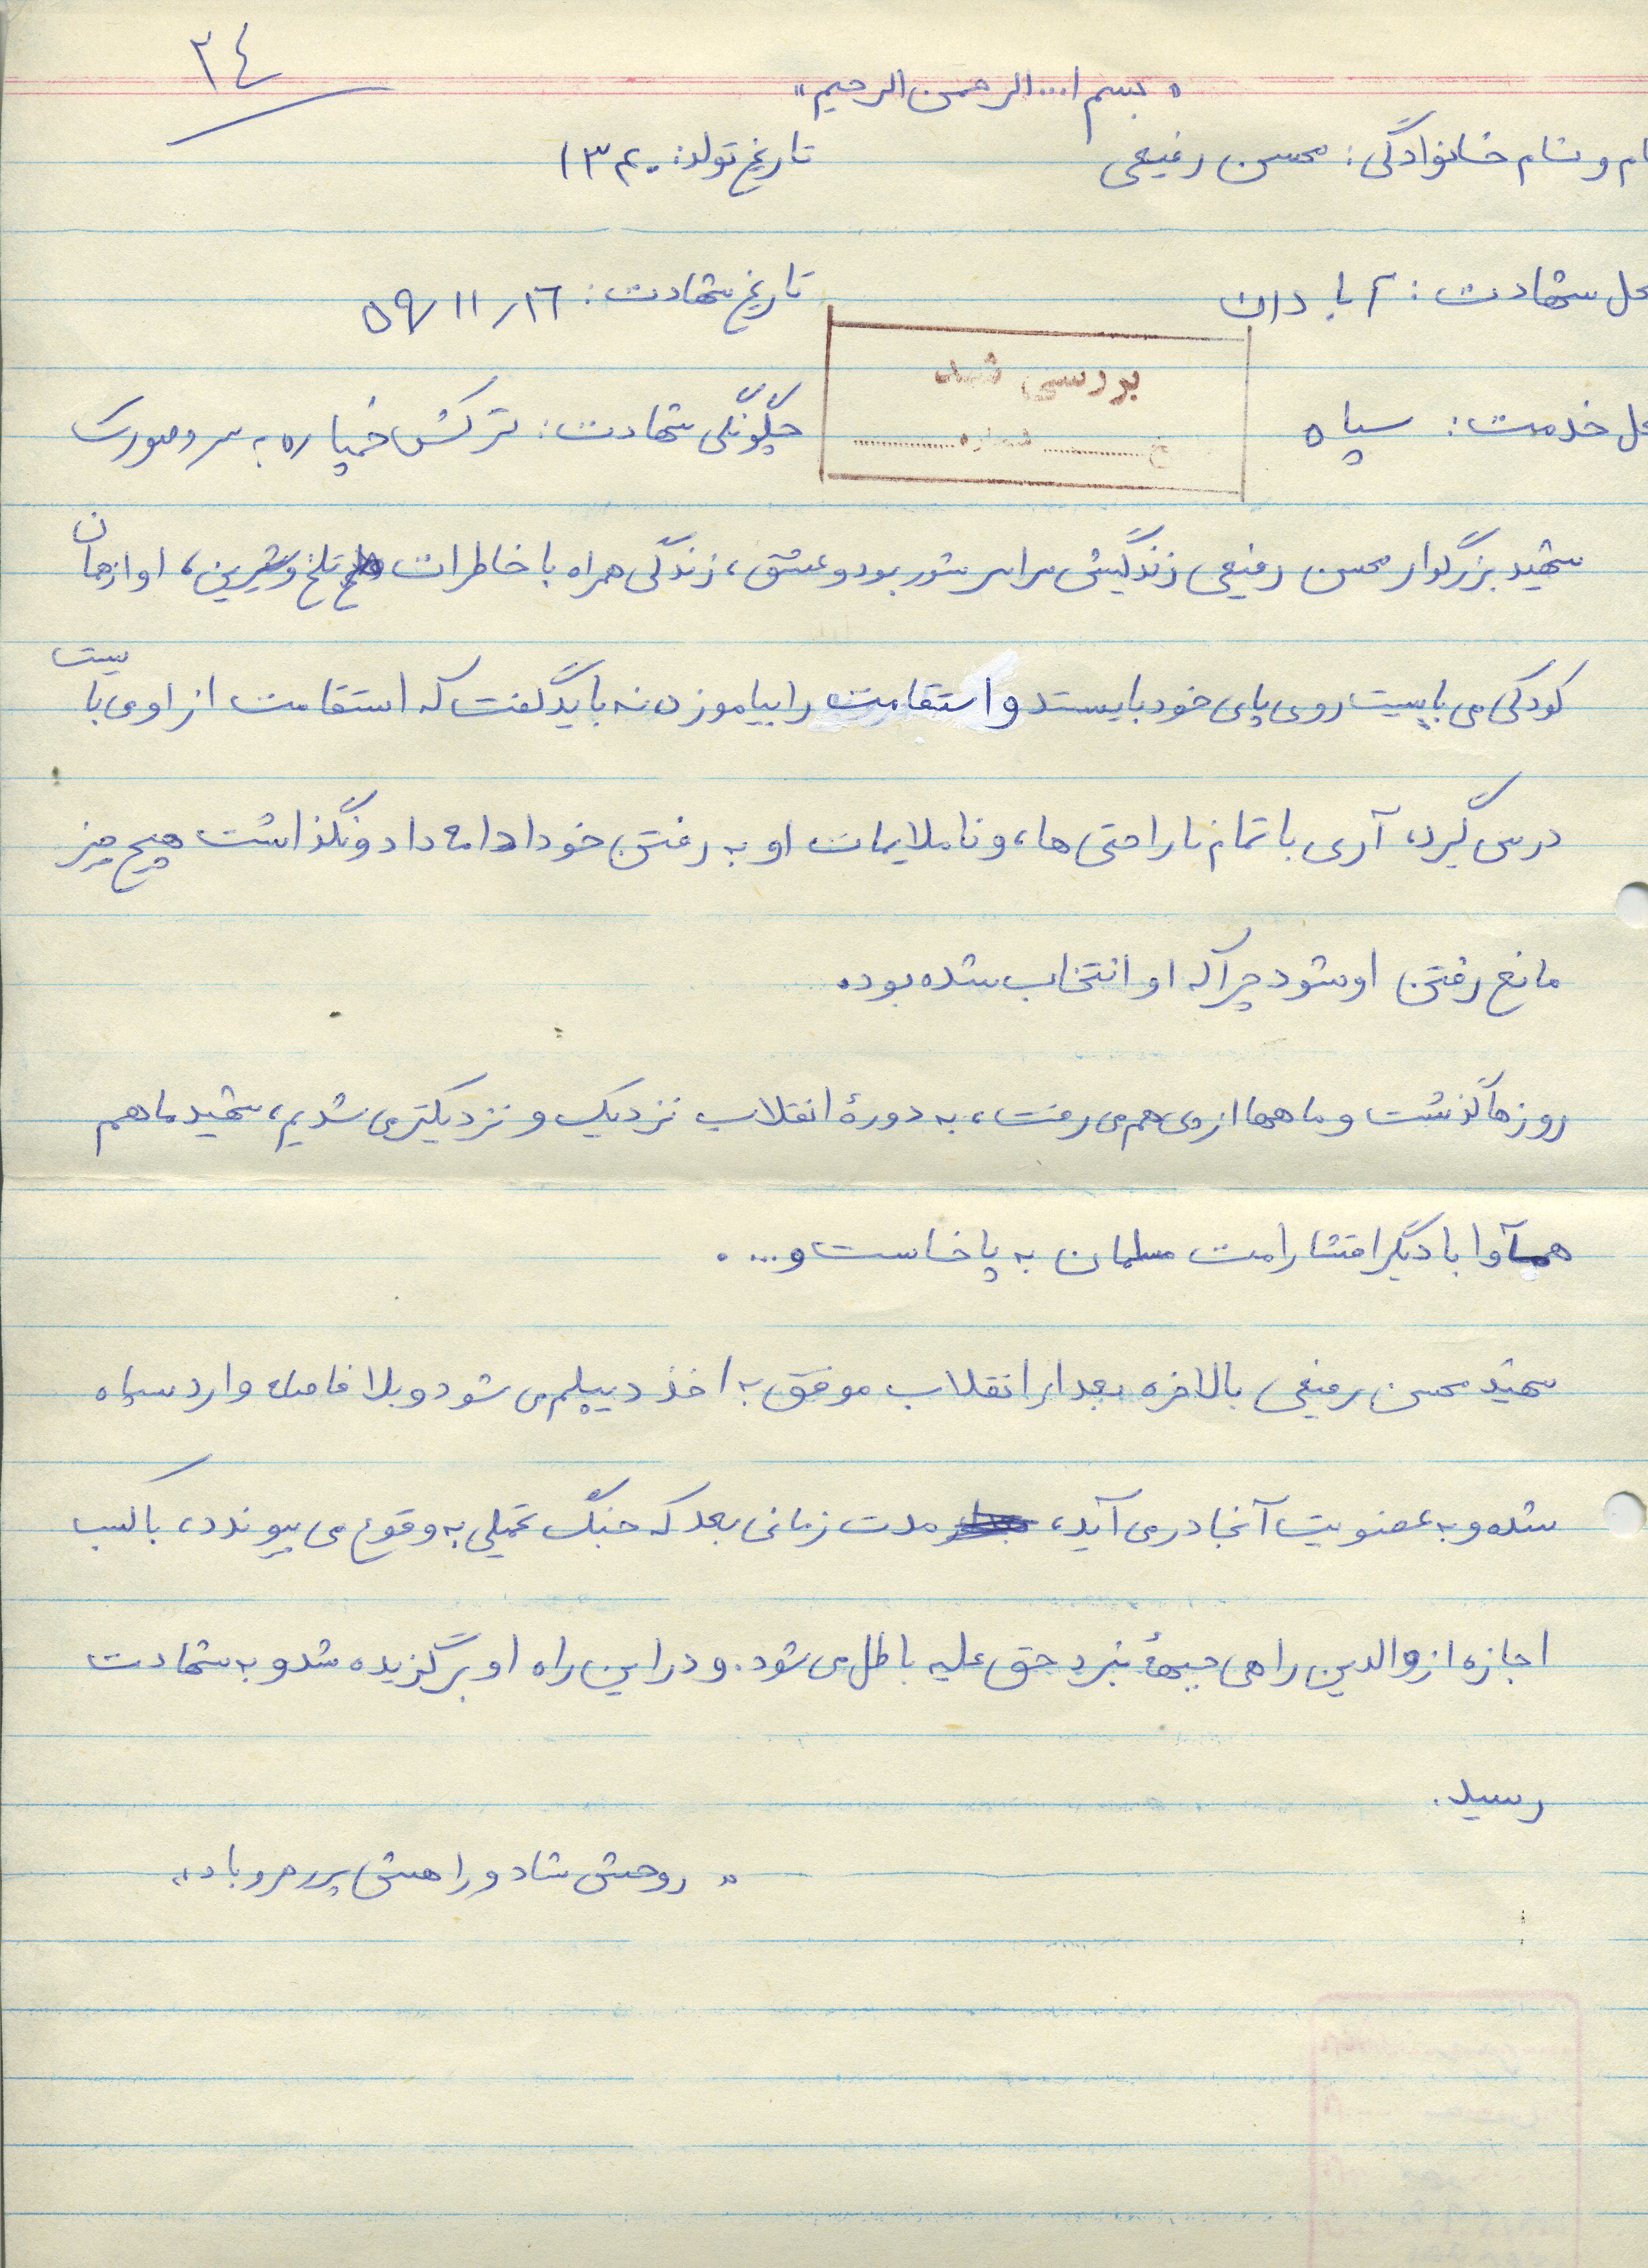 ۳۴
« بسم ا... الرحمن الرحیم »
نام و نام خانوادگی: محسن رفیعی تاریخ تولد: ۱۳۴۰
محل شهادت: آبادان تاریخ شهادت: ۵۹/۱۱/۱۶
بررسی شد
محل خدمت: سپاه چگونگی شهادت: ترکش خمپاره به سر و صورت
شماره
شهید بزرگوار محسن رفیعی زندگیش سراسر شور بود و عشق، زندگی همراه با خاطرات تلخ و شیرین، او از همان
کودکی می بایست روی پای خود بایستد و استقامت را بیاموزد نه باید گفت که استقامت از او می بایست
درس گیرد، آری با تمام ناراحتی ها، و ناملایمات او به رفتن خود ادامه داد و نگذاشت هیچ چیز
مانع رفتن او شود چرا که او انتخاب شده بود.
روزها گذشت و ماهها از پی هم می رفت، به دورهٔ انقلاب نزدیک و نزدیکتر می شدیم، شهید ما هم
همآوا با دیگر اقشار امت مسلمان به پا خاست و... .
شهید محسن رفیعی بالاخره بعد از انقلاب موفق به اخذ دیپلم می شود و بلافاصله وارد سپاه
شده و به عضویت آنجا در می آید، مدت زمانی بعد که جنگ تحمیلی به وقوع می پیوندد، با کسب
اجازه از والدین راهی جبههٔ نبرد حق علیه باطل می شود. و در این راه او برگزیده شد و به شهادت
رسید.
« روحش شاد و راهش پر رهرو باد »